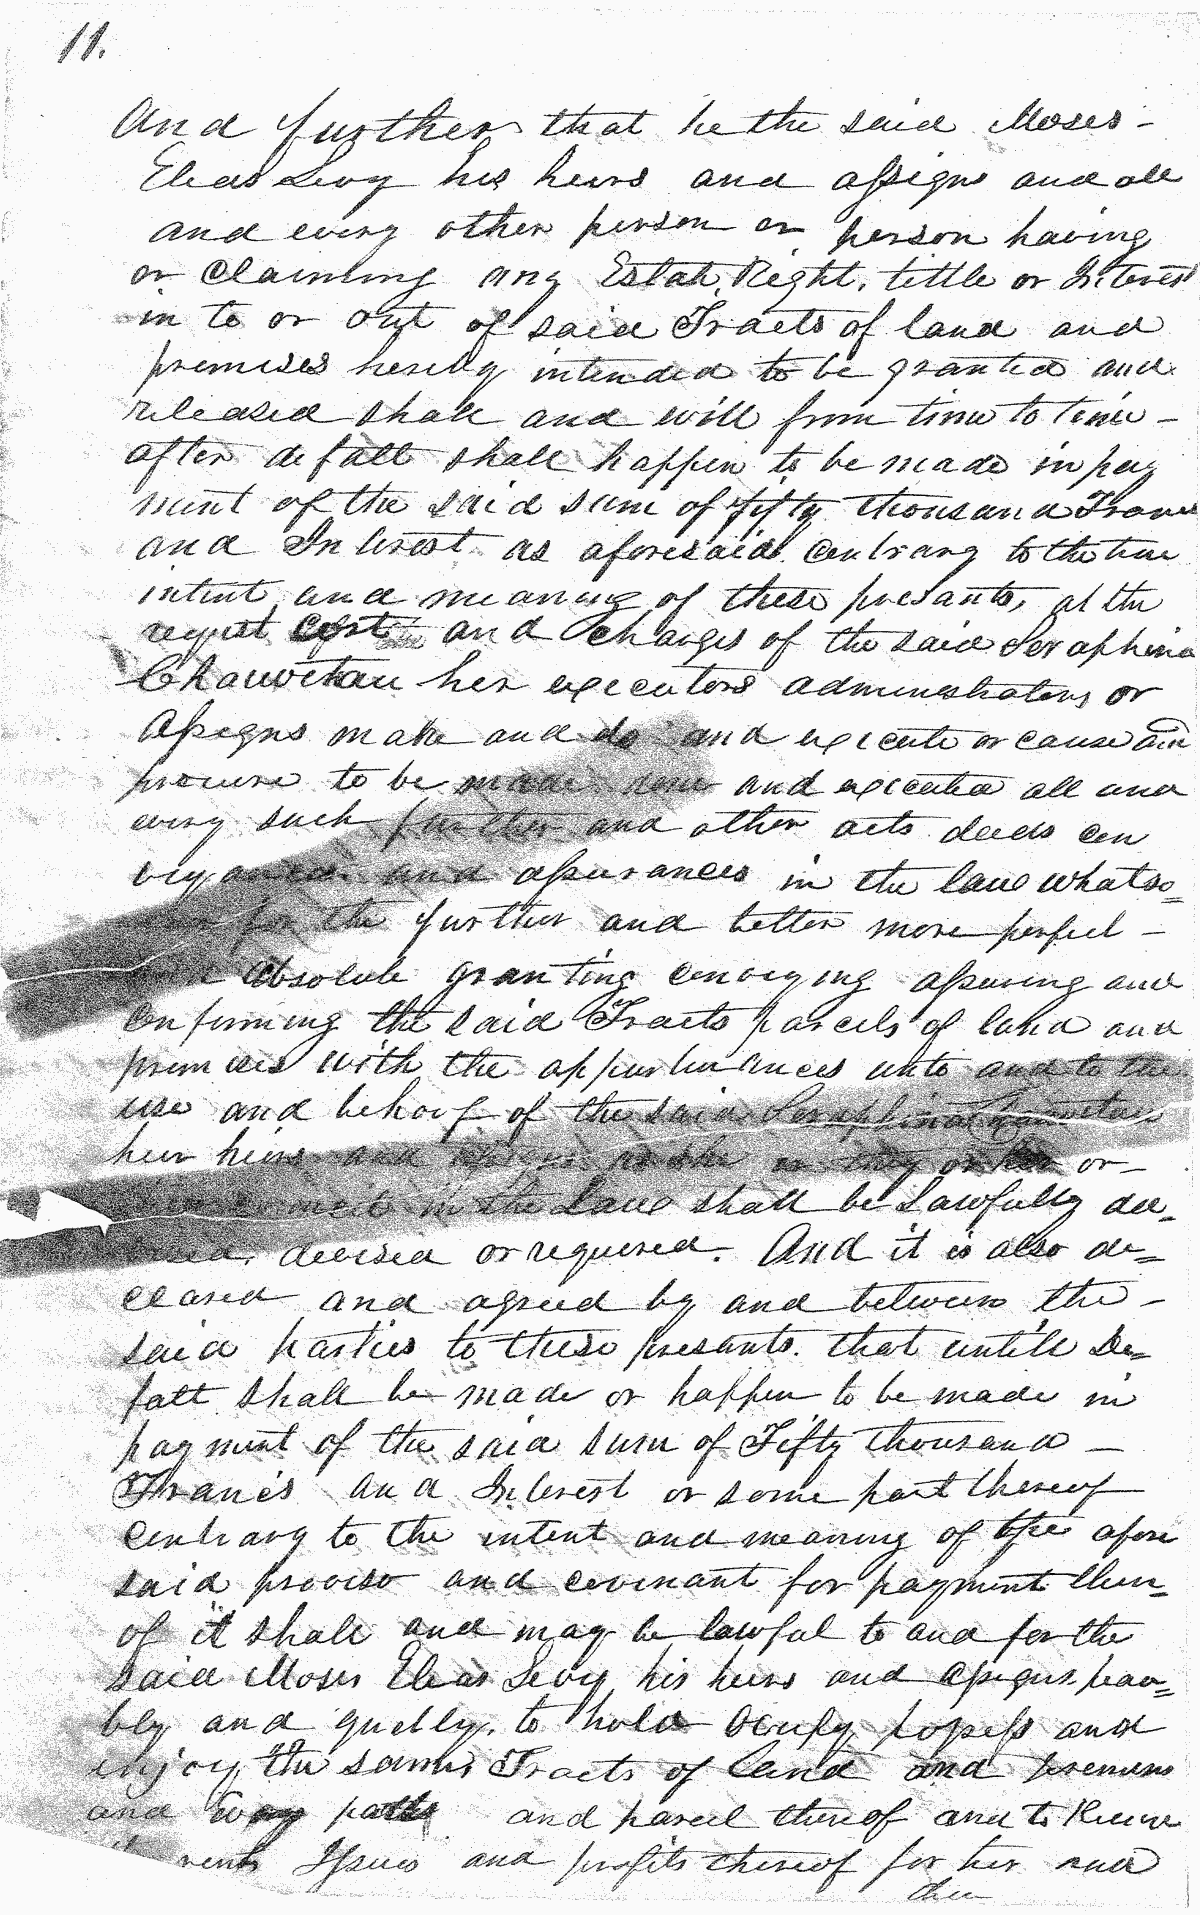 11.
And further that he the said Moses -
Elias Levy his heirs and assigns and all
and every other person or person having
or claiming any Estate, Right, tittle or Interest
in to or out of said Tracts of land and
premises hereby intended to be granted and
released shall and will from time to time -
after defalt shall happen to be made in pay
ment of the said sum of fifty thousand Francs
and Interest as aforesaid contrary to the true
intent and meaning of these presants, at the
request cost and charges of the said Seraphina
Chauviteau her executors administrators or
Assigns make and do and execute or cause and
procure to be made done and executed all and
every such further and other acts deeds con
veyances and assurances in the law whatso=
for the further and better more perfect -
absolute granting conveying assuring and
Confirming the said Tracts parcels of land and
premises with the appurtinances unto and to the
use and behoof of the said Seraphina Chauviteau
heir heirs and assigns as she or they or her or -
in the Law shall be Lawfully ad=
devised or required. And it is also de=
clared and agreed by and between the -
said parties to these presants. that untill De=
falt shall be made or happen to be made in
payment of the said sum of Fifty thousand -
Francs and Interest or some part thereof
Contrary to the intent and meaning of the afore
said proviso and covenant for payment there=
of it shall and may be lawful to and for the
said Moses Elias Levy his heirs and assigns peac=
bly and quetly. to hold Occupy possess and
enjoy the same Tracts of land and premises
and Every parts and parcel thereof and to Receive
rents Issues and profits thereof for her and
their